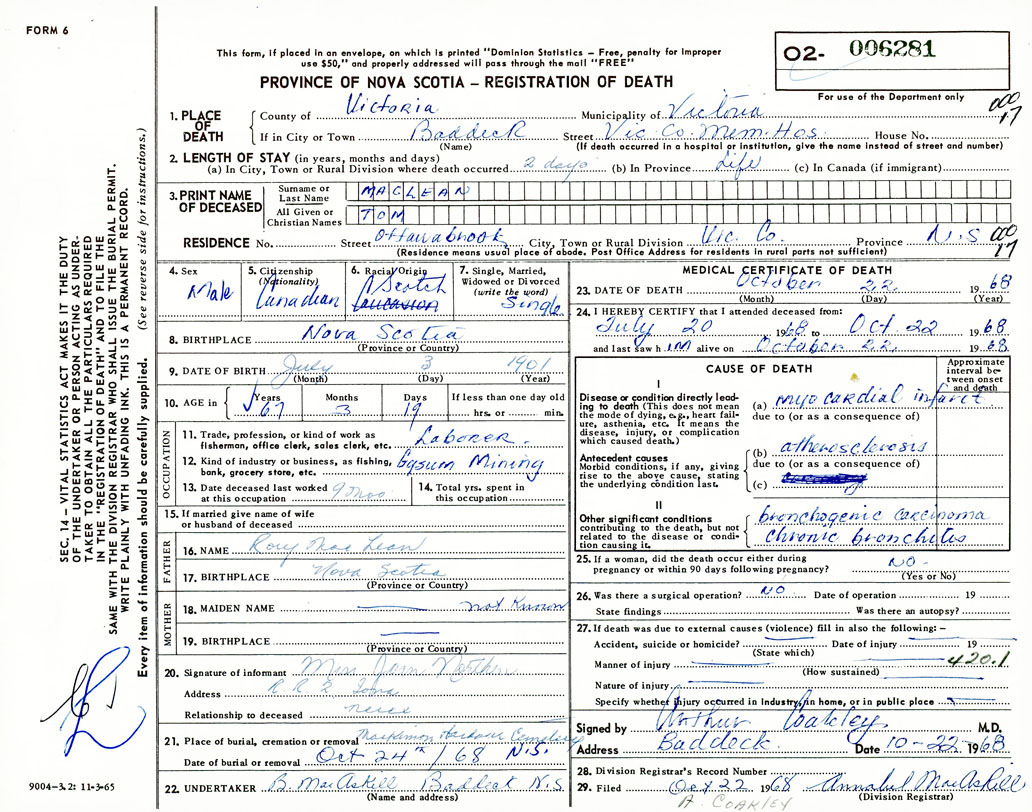 FORM 6
O2- 006281
This form, if placed in an envelope, on which is printed "Dominion Statistics – Free, penalty for improper
use $50," and properly addressed will pass through the mail "FREE"
PROVINCE OF NOVA SCOTIA – REGISTRATION OF DEATH
For use of the Department only
000
17
1. PLACE OF DEATH
County of Victoria Municipality of Victoria
If in City or Town Baddeck Street Vic. Co. Mem. Hos. House No.
(Name) (If death occurred in a hospital or institution, give the name instead of street and number)
2. LENGTH OF STAY (in years, months and days)
(a) In City, Town or Rural Division where death occurred 2 days (b) In Province Life (c) In Canada (if immigrant)
3. PRINT NAME OF DECEASED
Surname or Last Name MACLEAN
All Given or Christian Names TOM
RESIDENCE No. Street Ottawabrook City, Town or Rural Division Vic. Co. Province N.S
000
17
(Residence means usual place of abode. Post Office Address for residents in rural parts not sufficient)
4. Sex Male
5. Citizenship (Nationality) Canadian
6. Racial Origin Scotch
7. Single, Married, Widowed or Divorced (write the word) Single
8. BIRTHPLACE Nova Scotia
(Province or Country)
9. DATE OF BIRTH July 3 1901
(Month) (Day) (Year)
10. AGE in Years 67 Months 3 Days 19 If less than one day old hrs. or min.
OCCUPATION
11. Trade, profession, or kind of work as fisherman, office clerk, sales clerk, etc. Laborer.
12. Kind of industry or business, as fishing, bank, grocery store, etc. Gysum Mining
13. Date deceased last worked at this occupation 9 mos
14. Total yrs. spent in this occupation
15. If married give name of wife or husband of deceased
FATHER
16. NAME Rory MacLean
17. BIRTHPLACE Nova Scotia
(Province or Country)
MOTHER
18. MAIDEN NAME not Known
19. BIRTHPLACE
(Province or Country)
20. Signature of informant
Address R R 2 Iona
Relationship to deceased niece
21. Place of burial, cremation or removal Harbour Cemetery
Date of burial or removal Oct 24th /68 N.S.
22. UNDERTAKER B. MacAskill Baddeck N.S
(Name and address)
MEDICAL CERTIFICATE OF DEATH
23. DATE OF DEATH October 22 1968
(Month) (Day) (Year)
24. I HEREBY CERTIFY that I attended deceased from:
July 20 1968 to Oct. 22 1968
and last saw him alive on October 22 1968
CAUSE OF DEATH
Approximate interval between onset and death
I
Disease or condition directly leading to death (This does not mean the mode of dying, e.g., heart failure, asthenia, etc. It means the disease, injury, or complication which caused death.)
(a) myocardial infarct
due to (or as a consequence of)
Antecedent causes
Morbid conditions, if any, giving rise to the above cause, stating the underlying condition last.
(b) atherosclerosis
due to (or as a consequence of)
(c)
II
Other significant conditions contributing to the death, but not related to the disease or condition causing it.
bronchogenic carcinoma
chronic bronchitis
25. If a woman, did the death occur either during pregnancy or within 90 days following pregnancy? NO -
(Yes or No)
26. Was there a surgical operation? NO Date of operation 19
State findings Was there an autopsy?
27. If death was due to external causes (violence) fill in also the following: –
Accident, suicide or homicide? Date of injury 19
(State which)
Manner of injury 420.1
(How sustained)
Nature of injury
Specify whether injury occurred in Industry, in home, or in public place
Signed by Arthur Coakley M.D.
Address Baddeck. Date 10-22-1968
28. Division Registrar's Record Number
29. Filed Oct 22 1968 Annabel MacAskill
(Division Registrar)
A. COAKLEY
SEC. 14 – VITAL STATISTICS ACT MAKES IT THE DUTY
OF THE UNDERTAKER OR PERSON ACTING AS UNDER-
TAKER TO OBTAIN ALL THE PARTICULARS REQUIRED
IN THE "REGISTRATION OF DEATH" AND FILE THE
SAME WITH THE DIVISION REGISTRAR WHO SHALL ISSUE THE BURIAL PERMIT.
WRITE PLAINLY WITH UNFADING INK. THIS IS A PERMANENT RECORD.
Every item of information should be carefully supplied. (See reverse side for instructions.)
9004–3.2: 11-3-65